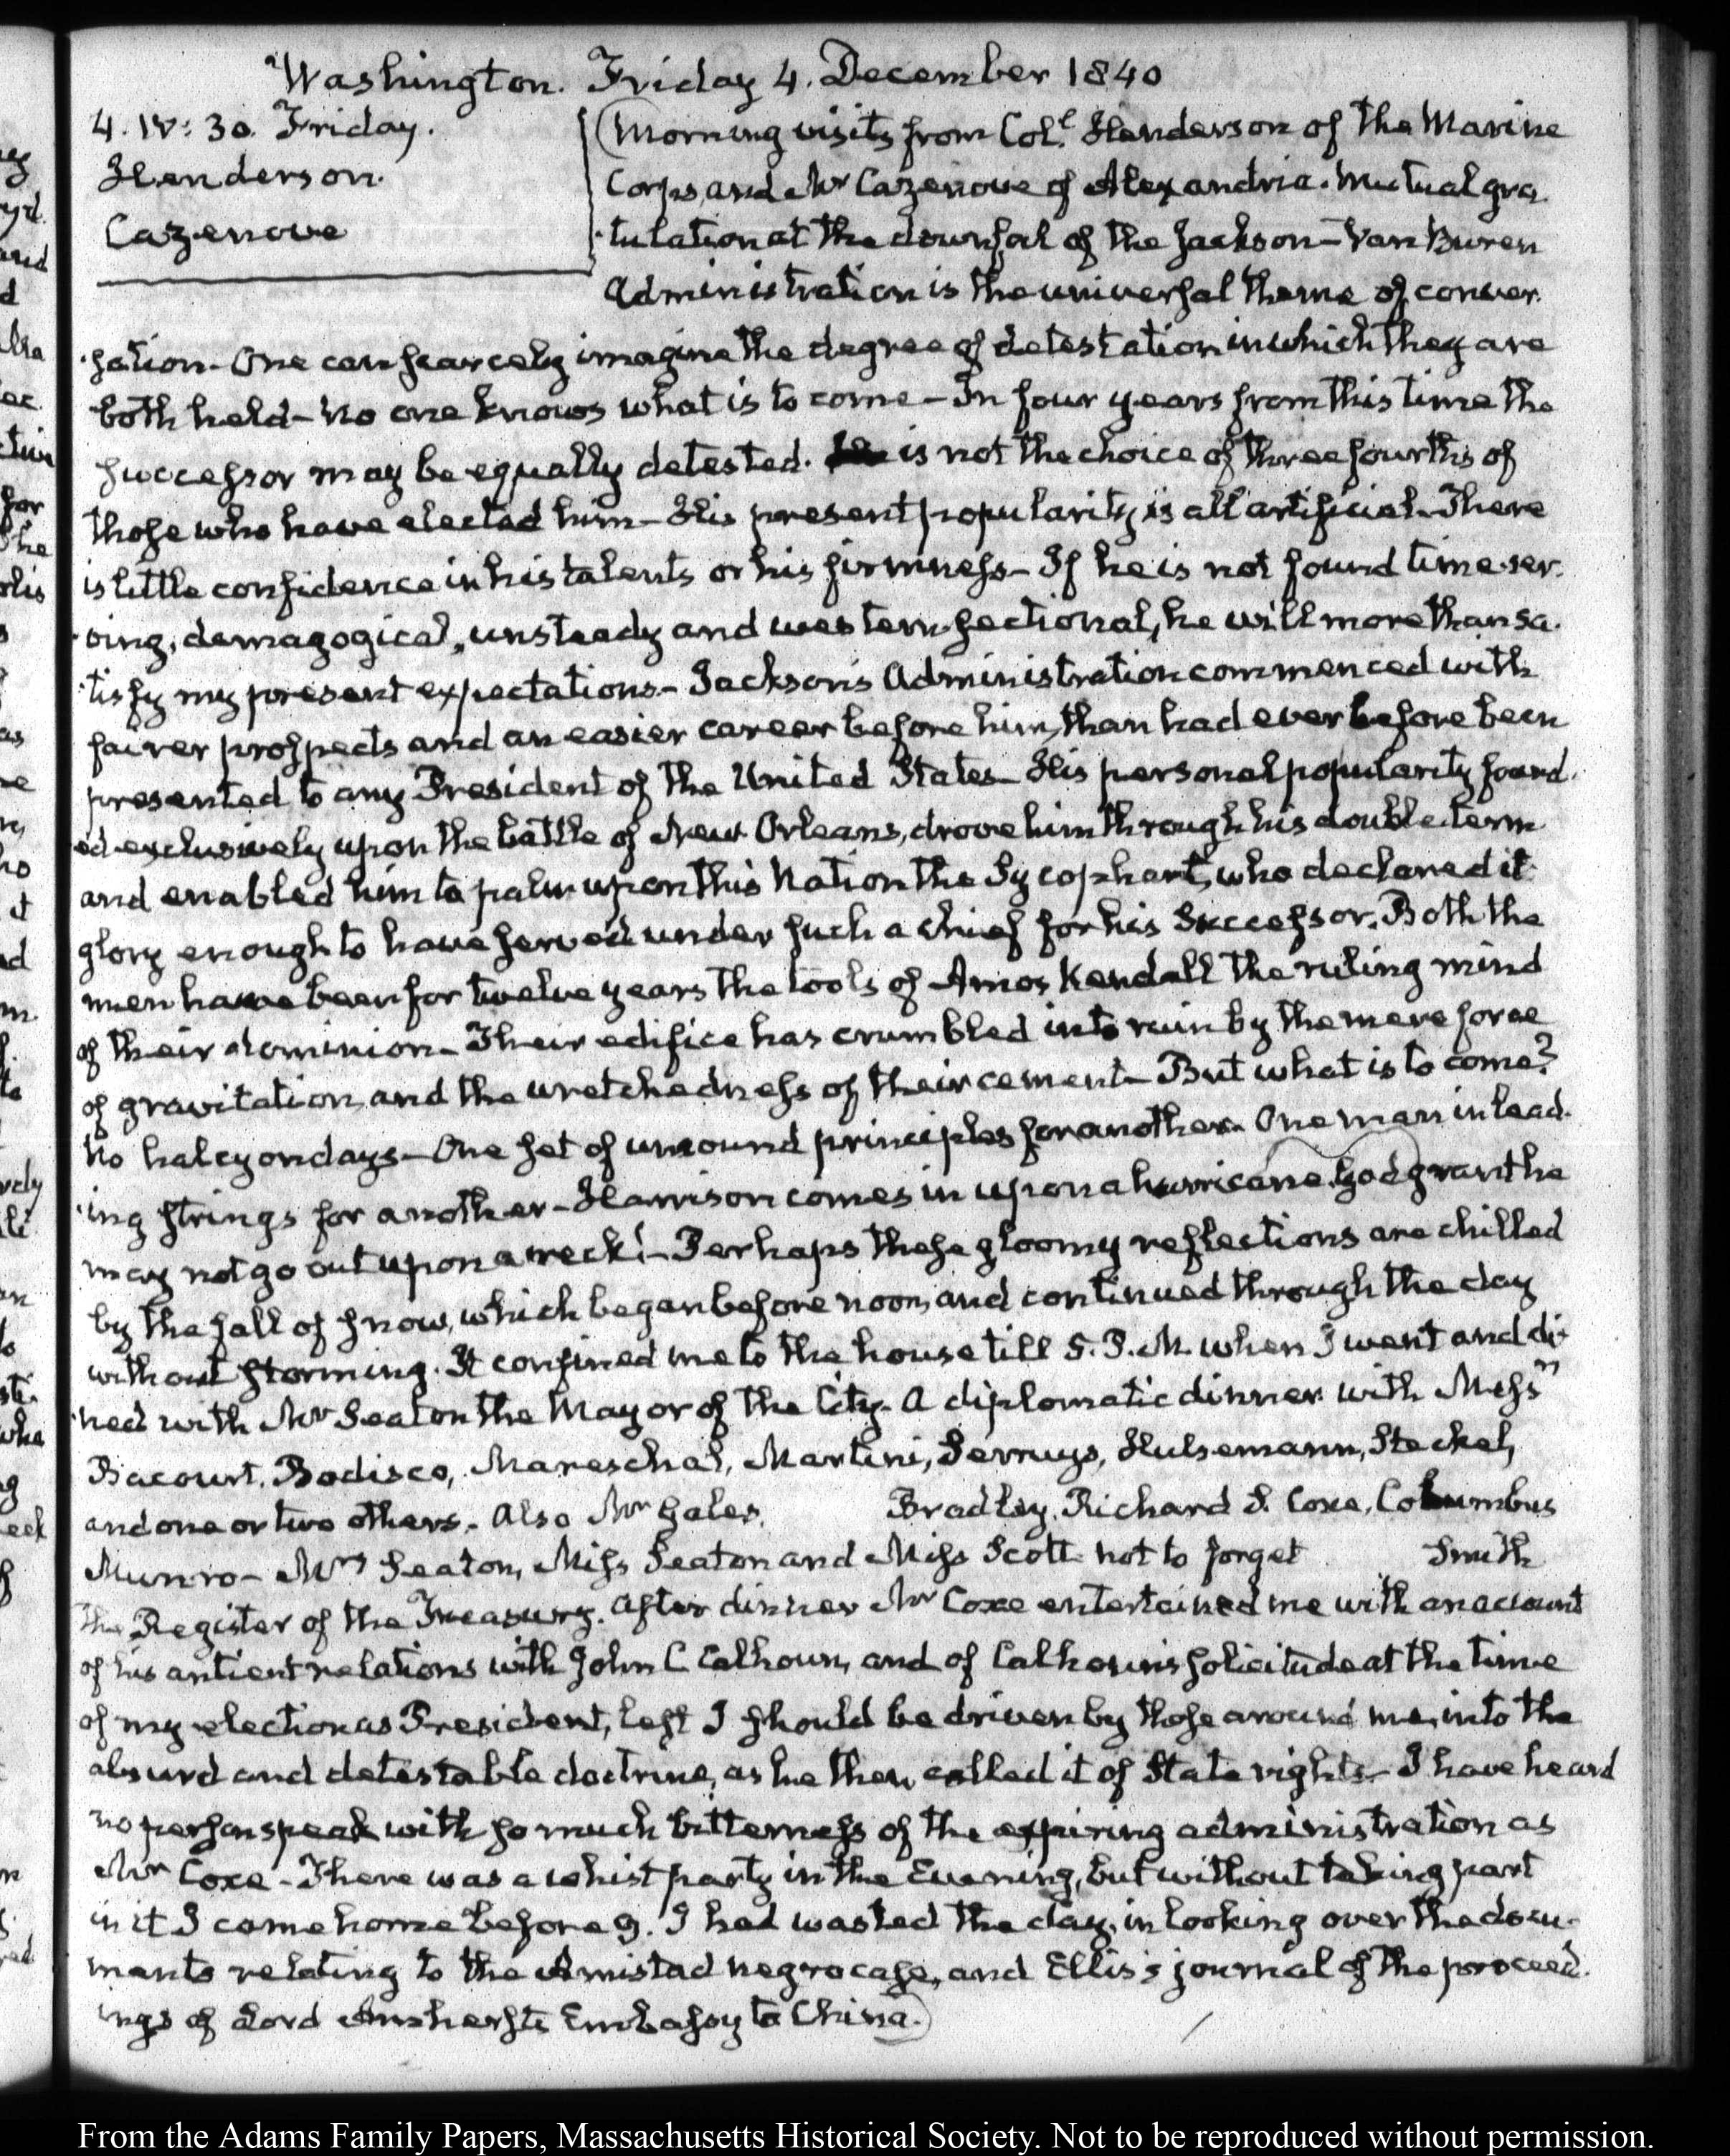 Washington. Friday 4. December 1840
4. IV: 30. Friday.
Henderson.
Cazenove
Morning visits from Col.l Henderson of the Marine
Corps, and Mr Cazenove of Alexandria. Mutual gra
-tulation at the downfal of the Jackson-Van Buren
Administration is the universal theme of conver.
-sation. One can scarcely imagine the degree of detestation in which they are
both held- No one knows what is to come- In four years from this time the
successor may be equally detested. He is not the choice of three fourths of
those who have elected him- His present popularity is all artificial. There
is little confidence in his talents or his firmness- If he is not found time-ser.
-ving, demagogical, unsteady and western-sectional, he will more than sa.
-tisfy my present expectations- Jackson's Administration commenced with
fairer prospects and an easier career before him, than had ever before been
presented to any President of the United States- His personal popularity found.
ed exclusively upon the battle of New Orleans, drove him through his double term
and enabled him to palm upon this Nation the Sycophant, who declared it
glory enough to have served under such a chief for his Successor. Both the
men have been for twelve years the tools of Amos Kendall the ruling mind
of their dominion- Their edifice has crumbled into ruin by the mere force
of gravitation, and the wretchedness of their cement- But what is to come?
No halcyon days- One set of unsound principles for another. One man in lead.
-ing strings for another- Harrison comes in upon a hurricane. God grant he
may not go out upon a wreck!- Perhaps these gloomy reflections are chilled
by the fall of snow, which began before noon, and continued through the day
without storming. It confined me to the house till 5. P.M. when I went and di-
-ned with Mr Seaton the Mayor of the City. A diplomatic dinner with Messrs
Bacourt, Bodisco, Mareschal, Martini, Serruys, Hulsemann, Steckel,
and one or two others. Also Mr Gales, Bradley, Richard S. Coxe, Columbus
Munro- Mrs Seaton, Miss Seaton and Miss Scott. not to forget Smith
The Register of the Treasury. After dinner Mr Coxe entertained me with an account
of his antient relations with John C Calhoun, and of Calhoun's solicitude at the time
of my election as President, lest I should be driven by those around me, into the
absurd and detestable doctrine, as he then called it of State rights- I have heard
no person speak with so much bitterness of the expiring administration as
Mr Coxe- There was a whist party in the Evening, but without taking part
in it I came home before 9. I had wasted the day, in looking over the docu-
ments relating to the Amistad negro case, and Ellis's journal of the proceed.
ings of Lord Amherst's Embassy to China.
From the Adams Family Papers, Massachusetts Historical Society. Not to be reproduced without permission.